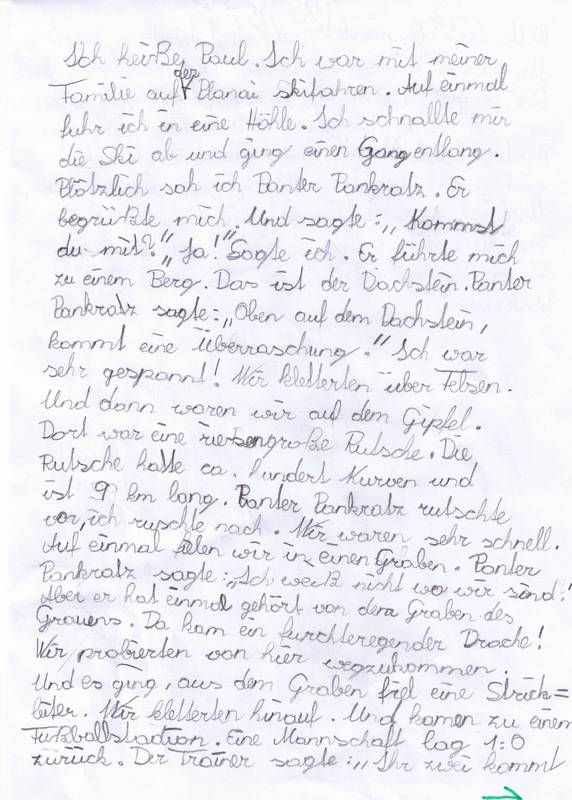 Ich heiße Paul. Ich war mit meiner
Familie auf der Planai Skifahren. Auf einmal
fuhr ich in eine Höhle. Ich schnallte mir
die Ski ab und ging einen Gang entlang.
Plötzlich sah ich Panter Pankratz. Er
begrüßte mich. Und sagte: „Kommst
du mit?" „Ja!" Sagte ich. Er führte mich
zu einem Berg. Das ist der Dachstein. Panter
Pankratz sagte: „Oben auf dem Dachstein,
kommt eine Überraschung." Ich war
sehr gespannt! Wir kletterten über Felsen.
Und dann waren wir auf dem Gipfel.
Dort war eine riesengroße Rutsche. Die
Rutsche hatte ca. hundert Kurven und
ist 9 km lang. Panter Pankratz rutschte
vor, ich ruschte nach. Wir waren sehr schnell.
Auf einmal fielen wir in einen Graben. Panter
Pankratz sagte: „Ich weiß nicht wo wir sind!"
Aber er hat einmal gehört von dem Graben des
Grauens. Da kam ein furchteregender Drache!
Wir probierten von hier wegzukommen.
Und es ging, aus dem Graben fiel eine Strick=
leiter. Wir kletterten hinauf. Und kamen zu einem
Fußballstadion. Eine Mannschaft lag 1:0
zurück. Der Trainer sagte: „Ihr zwei kommt